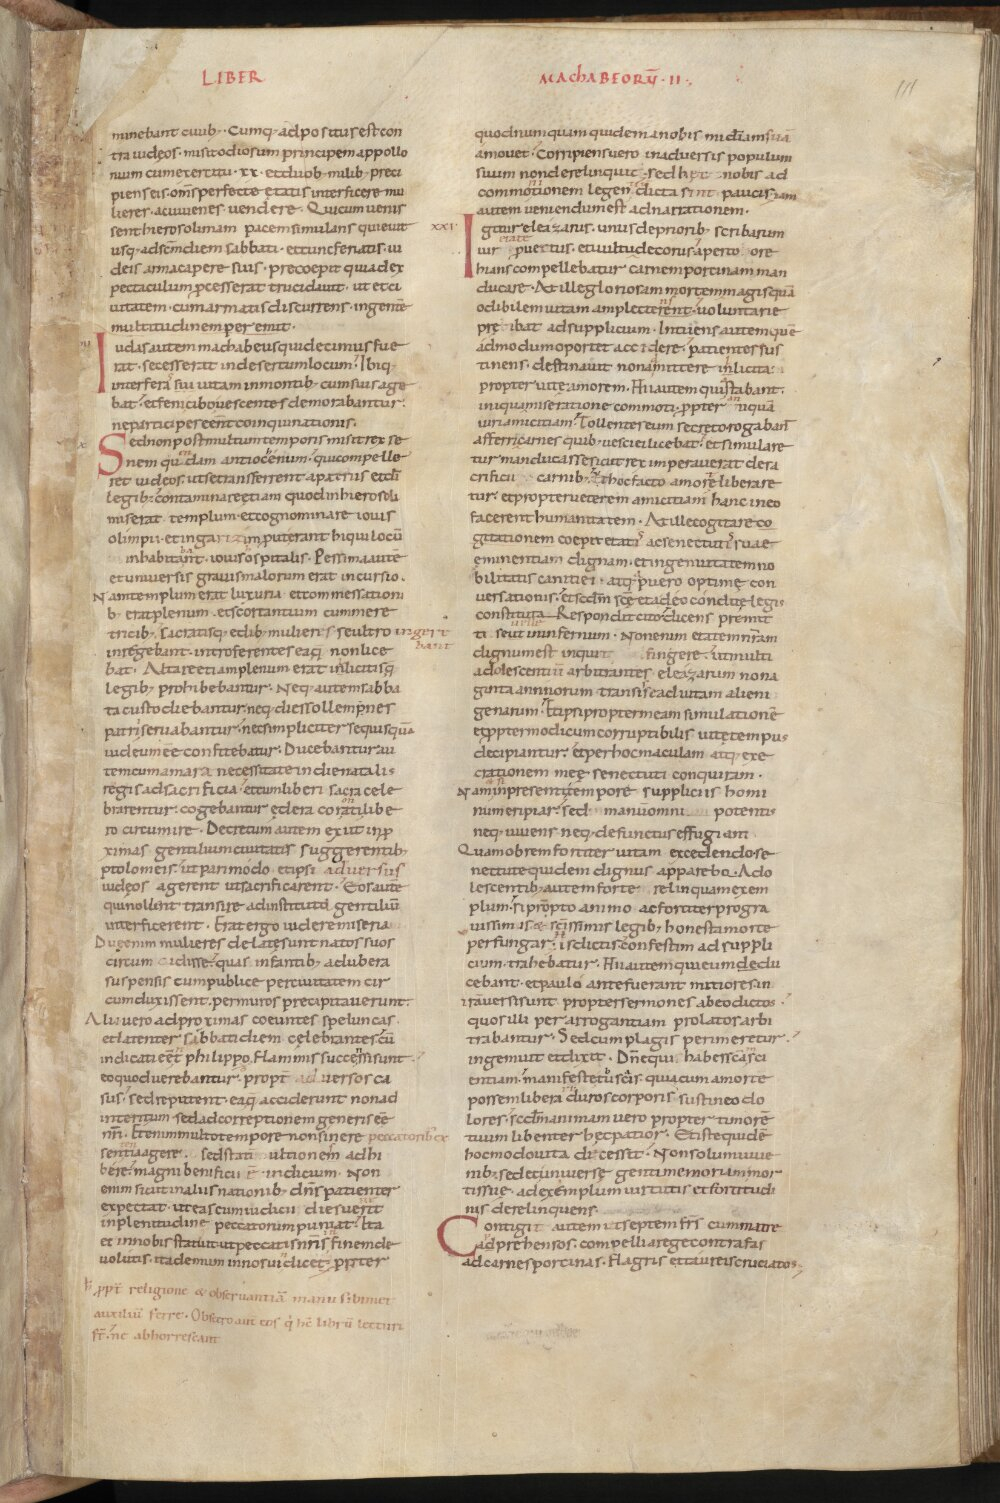 LIBER
MACHABEORŪ · II ·
minebant ciuib; · Cumq; adpositus est con
tra iudeos · misit odiosum principem appollo
nium cum exercitu · XX · et duob; milib; preci
piens eis · oms perfecte etatis interficere mu
lieres · ac iuuenes uendere · Qui cum uenis
sent hierosolimam pacem simulans quieuit
usq; ad scm diem sabbati · et tunc feriatis iu
deis arma capere suis · precoepit quia dex
pectaculum pcesserat trucidauit · ut et ci
uitatem cum armatis discurrens · ingentē
multitudinem peremit ·
Iudas autem machabeus qui decimus fue
rat · secesserat in desertum locum · Ibiq;
inter feras sui uitam in montib; cum suis age
bat · et feni cibo uescentes demorabantur ·
ne participes eent coinquinationis ·
Sed non post multum temporis misit rex se
nem quendam antiocenum · qui compelle
ret iudeos · ut se transferrent a patriis et di
legib; contaminare etiam quod in hierosoli
mis erat templum · et cognominare iouis
olimpii · et in garizim prout erant hi qui locū
inhabitant · iouis ospitalis · Pessima autē
et uniuersis grauis malorum erat incursio ·
Nam templum erat luxuria et commessationi
b; erat plenum · et scortantium cum mere
tricib; sacratisq; edib; mulieres se ultro ingere
bant
inregebant · intro ferentes eaq nonlice
bat · Altare etiam plenum erat inlicitisq
legib; prohibebantur · Neq; autem sabba
ta custodiebantur neq; dies sollempnes
patrii seruabantur · nec simpliciter se quisquā
iudeum eē confitebatur · Ducebantur au
tem cum amara necessitate in die natalis
regis ad sacrificia · et cum liberi sacra cele
brarentur · cogebantur edera coronati libe
ro circumire · Decretum autem exiit in p
ximas gentilium ciuitatis suggerentib;
ptolomeis · ut pari modo et ipsi aduersus
iudeos agerent ut sacrificarent · Eos autē
qui nollent transire ad instituta gentiliū
interficerent · Erat ergo uidere miseria
Due enim mulieres delate sunt natos suos
circumcidisse · quas infantib; ad ubera
suspensis cum publice per ciuitatem cir
cumduxissent · per muros precipitauerunt ·
Alii uero ad proximas coeuntes speluncas
et latenter sabbati diem celebrantes cū
indicati eēt philippo flammis succensi sunt
eo quod uerebantur · propt aduersos ca
sus · sed reputent · eaq acciderunt non ad
interitum sed ad correptionem generis eē
nri · Etenim multo tempore non sinere peccatorib; ex
sententia agere · sed stati ultionem adhi
bere · magni benificii ē indicium · Non
enim sicut in aliis nationib; dns patienter
expectat · ut eas cum iudicii dies uenerit
in plenitudine peccatorum puniat · Ita
et in nobis statuit ut peccatis nris in finem de
uolutis · ita demum in nos uindicet · propter
ppt religione & obseruantiā manu sibimet
auxiliū ferre · Obsecro aut eos q hc librū lecturi
st · ne abhorrescant
quod numquam quidem a nobis mīdiam suā
amouet · Corripiens uero in aduersis populum
suum non derelinquit · sed hec nobis ad
commonitionem legentium dicta sint paucis · iam
autem ueniendum est ad narrationem ·
XXV
Igitur eleazarus · unus de priorib; scribarum
uir etate prouectus · et uultu decorus aperto ore
hians compellebatur carnem porcinam man
ducare · At ille gloriosam mortem magis quā
odibilem uitam amplectens · uoluntarie
preibat ad supplicium · Intuens autem quē
admodum oporteret accedere · patienter sus
tinens · destinauit non admittere inlicita
propter uite amorem · Hii autem qui stabant ·
iniqua miseratione commoti · ppter antiquā
uiri amicitiam · Tollentes eum secreto rogabant
afferri carnes quib; uesci ei licebat · et simulare
tur manducasse sicut rex imperauerat de sa
crificii carnib; · Ut hoc facto a morte liberare
tur · et propter ueterem amicitiam hanc in eo
facerent humanitatem · At ille cogitare co
gitationem coepit etatis ac senectutis suae
eminentiam dignam · et ingenuitatem no
bilitatis canitiei · atq; puero optime con
uersationis · et scdm sce et a deo condite legis
constituta · Respondit cito dicens premit
ti se uelle in infernum · Non enim etatem nram
dignum est inquit fingere · ut multi
adolescentiū arbitrantes eleazarum nona
ginta annorum transisse ad uitam alieni
genarum · Et ipsi propter meam simulationē
et ppter modicum corruptibilis uite tempus
decipiantur · et per hoc maculam atq; exe
crationem mee senectuti conquiram ·
Nam etsi in presenti tempore suppliciis homi
num eripiar · sed manum omnipotentis
neq; uiuens neq; defunctus effugiam
Quam ob rem fortiter uitam excedendo se
nectute quidem dignus apparebo · Ado
lescentib; autem forte relinquam exem
plum · si prompto animo ac fortiter pro gra
uissimis ac scissimis legib; honesta morte
perfungar · His dictis confestim ad suppli
cium trahebatur · Hii autem qui eum du
cebant · et paulo ante fuerant mitiores in
iram uersi sunt propter sermones ab eo dictos ·
quos illi per arrogantiam prolatos arbi
trabantur · Sed cum plagis perimeretur
ingemuit et dixit · Dne qui habes scam sci
entiam · manifeste tu scis · quia cum a morte
possem liberari duros corporis sustineo do
lores · scdm animam uero propter timorē
tuum libenter hec patior · Et iste quidē
hoc modo uita decessit · Non solum iuue
nib; sed et uniuerse genti memoriam mor
tis sue · ad exemplum uirtutis et fortitudi
nis derelinquens
Contigit autem ut septem frs cum matre
adprehensos · compelli a rege contra fas
ad carnes porcinas · flagris et taureis cruciatos ·